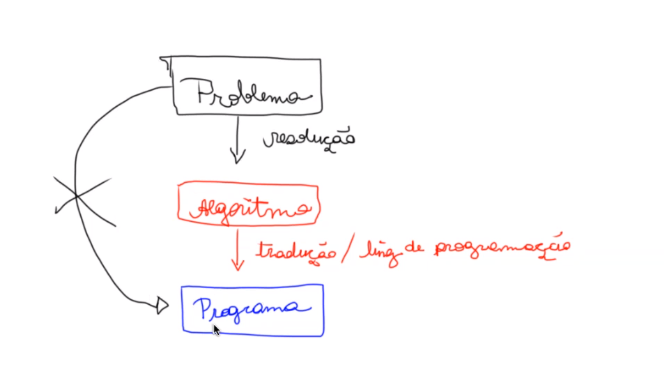 Problema
resolução
Algoritmo
tradução / ling de programação
Programa